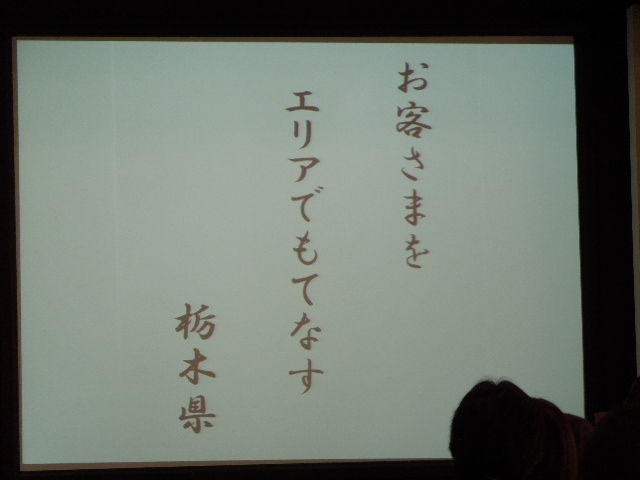 お客さまを
エリアでもてなす
栃木県